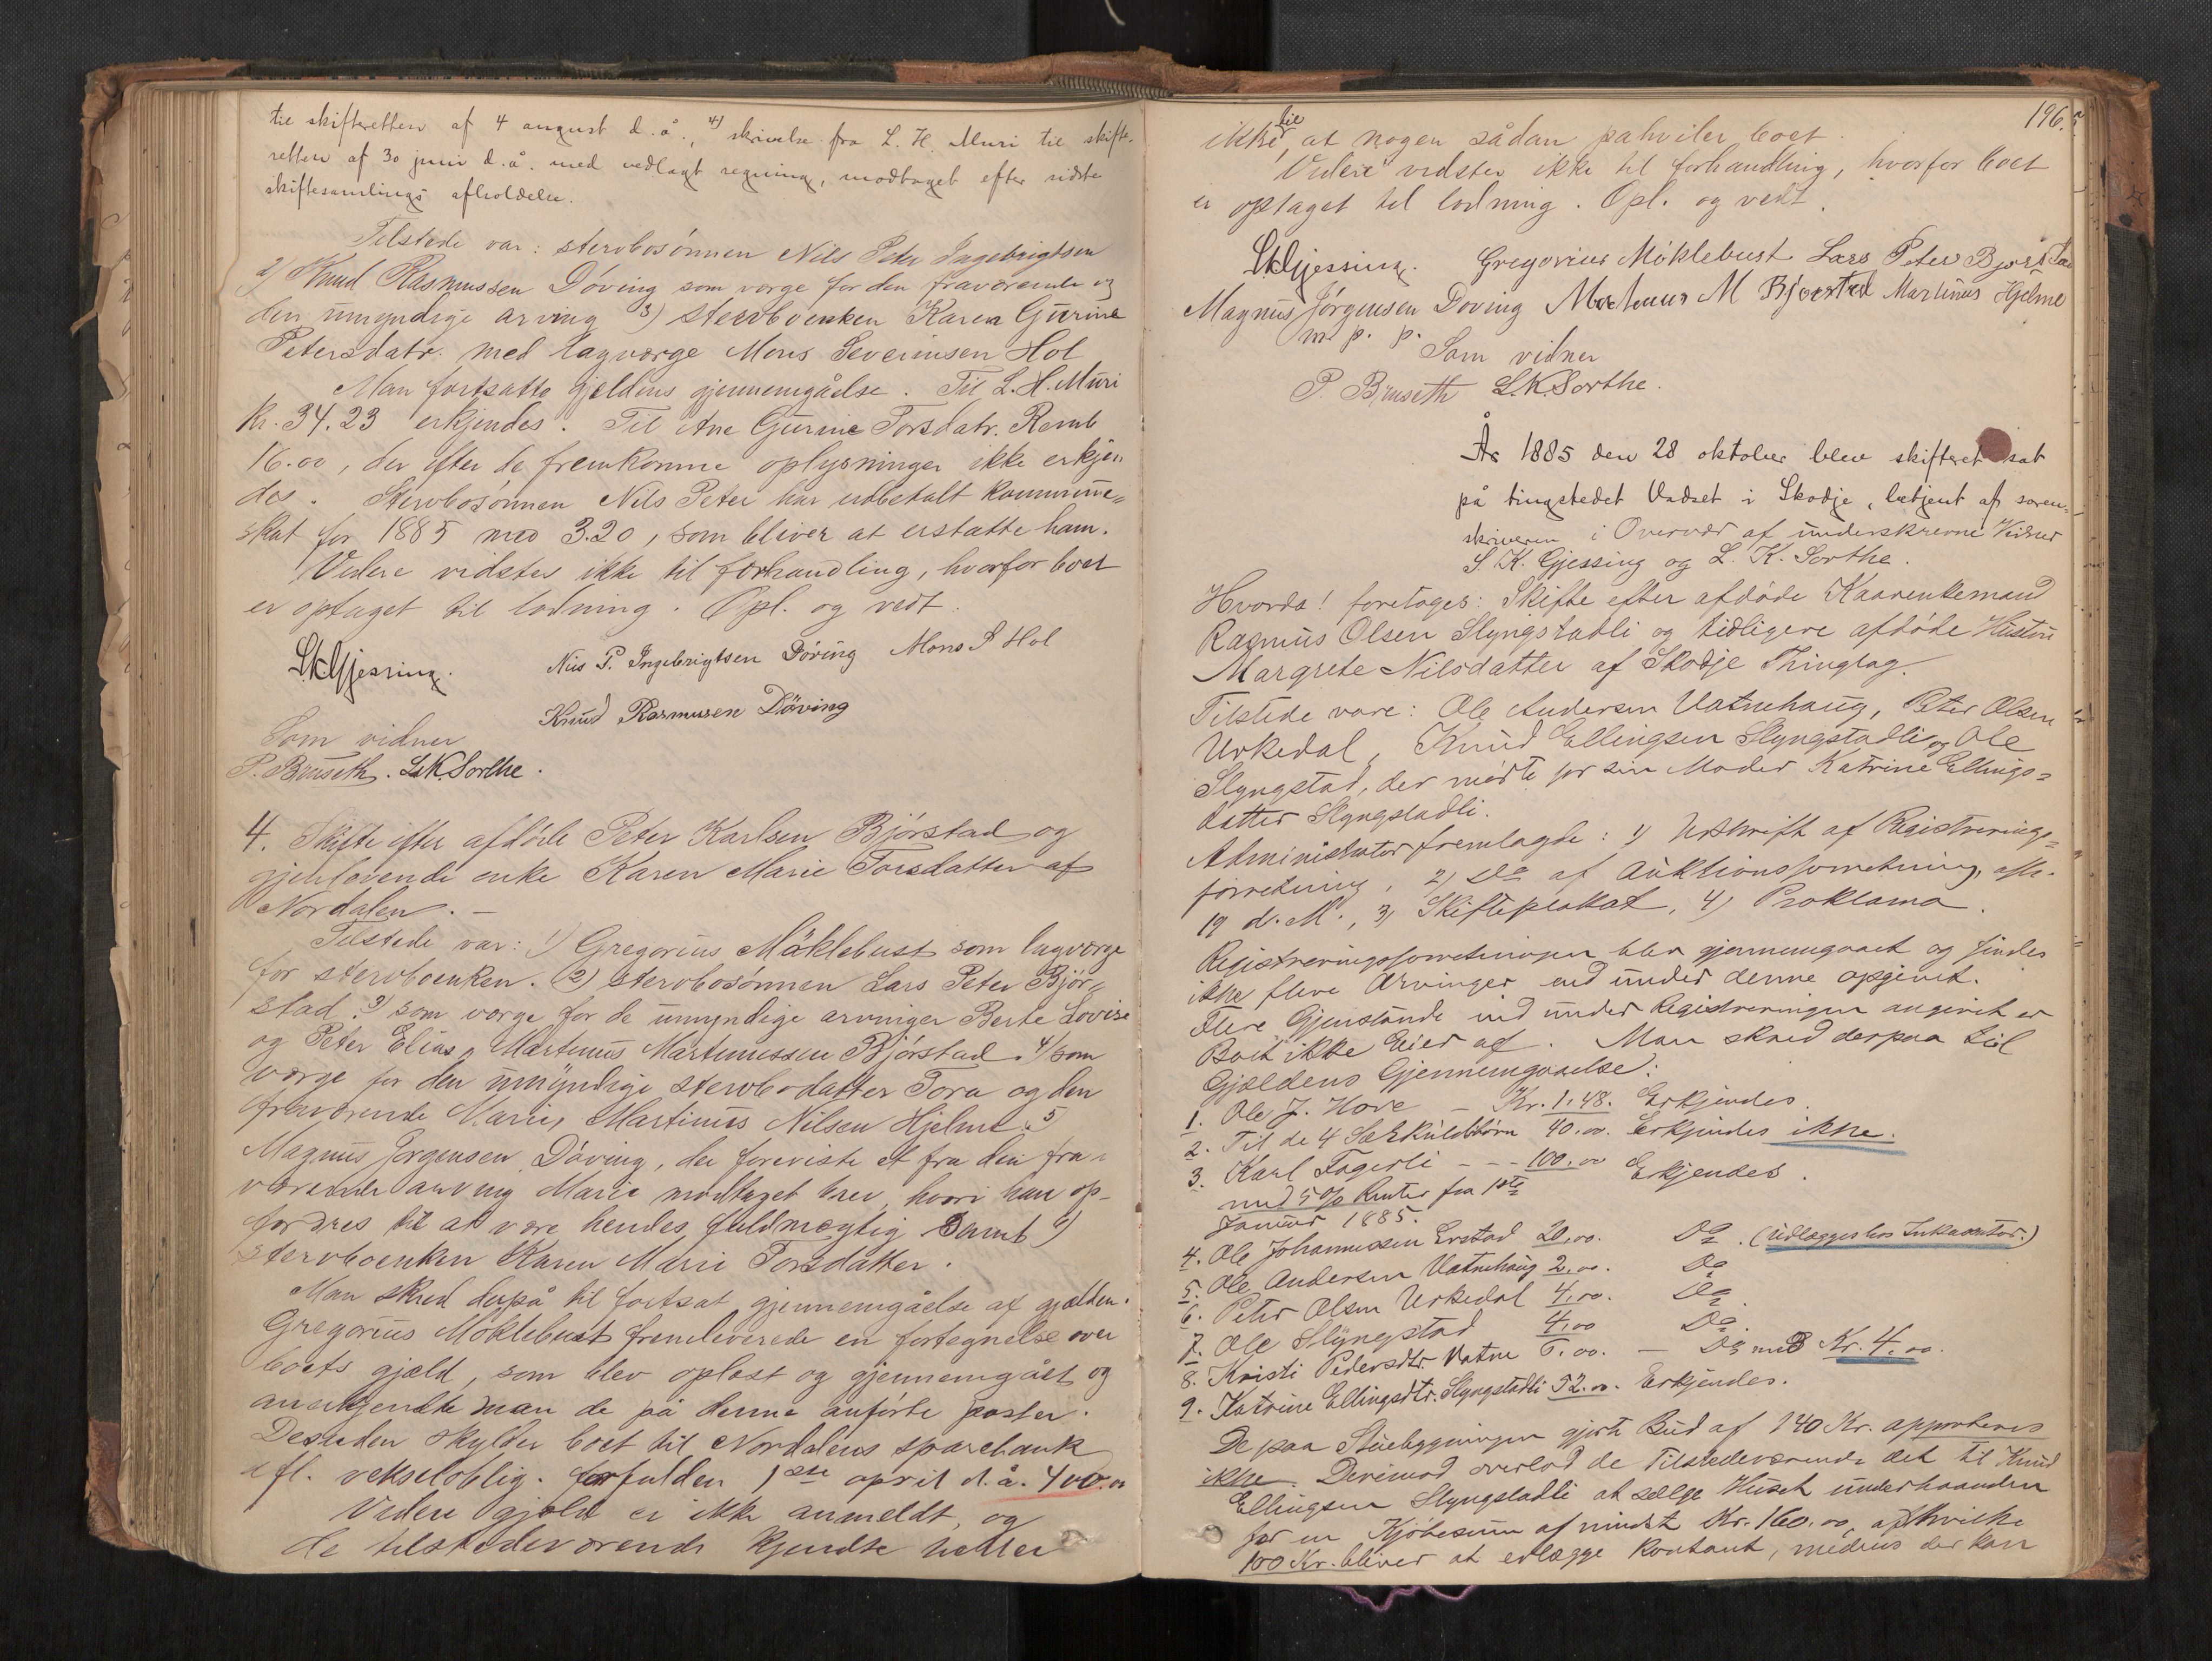 til skifteretten af 4 august d. å., 4) skrivelse fra L. H. Muri til skifte-
retten af 30 juni d. å. med vedlagt regning, modtaget efter sidste
skiftesamlings afholdelse.
Tilstede var: sterobosønnen Nils Peter Ingebrigtsen
2) Knud Rasmussen Døving som værge for den fraværende og
den umyndige arving 3) sterboenken Karen Gurine
Petersdatr. med lagværge Mons Severinsen Hol
Man fortsatte gjeldens gjennemgåelse. Til L. H. Muri
kr. 34.23 erkjendes. Til Ane Gurine Torsdatr. Remb
16.00, der efter de fremkomne oplysninger ikke erkjen
des. Stervbosønnen Nils Peter har udbetalt kommune=
skat for 1885 med 3.20, som bliver at erstatte ham.
Videre vidstes ikke til forhandling, hvorfor boet
er optaget til lodning. Opl. og vedt.
S.K. Gjessing. Nils P. Ingebrigtsen Döving Mons S Hol
Knud Rasmusen Döving
Som vidner
P. Bruseth. L.K. Sorthe.
4. Skifte efter afdøde Peter Karlsen Bjørstad og
gjenlevende enke Karen Marie Torsdatter af
Nordalen. —
Tilstede var: 1) Gregorius Mäklebust som lagværge
for stervboenken. 2) stervbosønnen Lars Peter Bjør=
stad. 3) som værge for de umyndige arvinger Berte Lovise
og Peter Elias, Martinus Martinussen Bjørstad. 4) som
værge for den umyndige stervbodatter Tora og den
fraværende Marie, Martinus Nilsen Hjelme. 5
Magnus Jørgensen Døving, der foreviste et fra den fra=
værende arving Marie modtaget brev, hvori han op-
fordres til at være hendes fuldmægtig Samt 6)
stervboenken Karen Marie Torsdatter.
Man skred derpå til fortsat gjennemgåelse af gjælden.
Gregorius Möklebust fremleverede en fortegnelse over
boets gjæld, som blev oplæst og gjennemgået og
anerkjendte man de på denne anførte poster.
Desuden skylder boet til Nordalens sparebank
ifl. vekseloblig. forfalden 1ste april d. å. 400.00
Videre gjæld er ikke anmeldt, og
de tilstedeværende kjendte heller
196.
ikke til, at nogen sådan påhviler boet.
Videre vidstes ikke til forhandling, hvorfor boet
er optaget til lodning. Opl. og vedt.
S.K. Gjessing. Gregorius Möklebust Lars Peter Bjørstad
Magnus Jörgensen Doving Martinus M Bjørstad Martinus Hjelme
m. p. p.
Som vidner
P. Bruseth L.K. Sorthe.
År 1885 den 28 oktober blev skifteret sat
på tingstedet Vadset i Skodje, betjent af soren=
skriveren i Overvær af underskrevne Vidner
S. K. Gjessing og L. K. Sorthe.
Hvorda! foretoges: Skifte efter afdøde Kaarenkemand
Rasmus Olsen Slyngstadli og tidligere afdøde Hustru
Margrete Nilsdatter af Skodje Thinglag.
Tilstede vare: Ole Andersen Vatnehaug, Peter Olsen
Urkedal, Knud Ellingsen Slyngstadli og Ole
Slyngstad, der mødte for sin Moder Katrine Ellings=
datter Slyngstadli.
Administrator fremlagde: 1) Udskrift af Registrerings=
forretning, 2) Do af Auktionsforretning, afh.
19 d. M., 3) Skifteplakat, 4) Proklama.
Registreringsforretningen blev gjennemgaaet og findes
ikke flere Arvinger end under denne opgivet.
Flere Gjenstande end under Registreringen angivet er
Boet ikke Eier af. Man skred derpaa til
Gjældens Gjennemgaaelse:
1. Ole J. Hove — Kr. 1.48. Erkjendes.
2. Til de 4 Særkuldbörn 40.00. Erkjendes ikke.
3. Karl Fagerli - - - 100.00 Erkjendes.
med 5 % Renter fra 1ste
Januar 1885.
4. Ole Johannessen Erstad 20.00. Do. (Udlægges hos Inkassator.)
5. Ole Andersen Vatnehaug 2.00. Do
6. Peter Olsen Urkedal 4.00. Do
7. Ole Slyngstad 4.00 Do.
8. Kristi Pedersdtr. Vatne 6.00. — Do med Kr. 4.00.
9. Katrine Ellingsdtr. Slyngstadli 52.00. Erkjendes.
De paa Stuebygningen gjorte Bud af 140 Kr. approberes
ikke. Derimod overlod de Tilstedeværende det til Knud
Ellingsen Slyngstadli at sælge Huset underhaanden
for en Kjøbesum af mindst Kr. 160.00, af hvilke
100 Kr. bliver at erlægge kontant, medens der kan